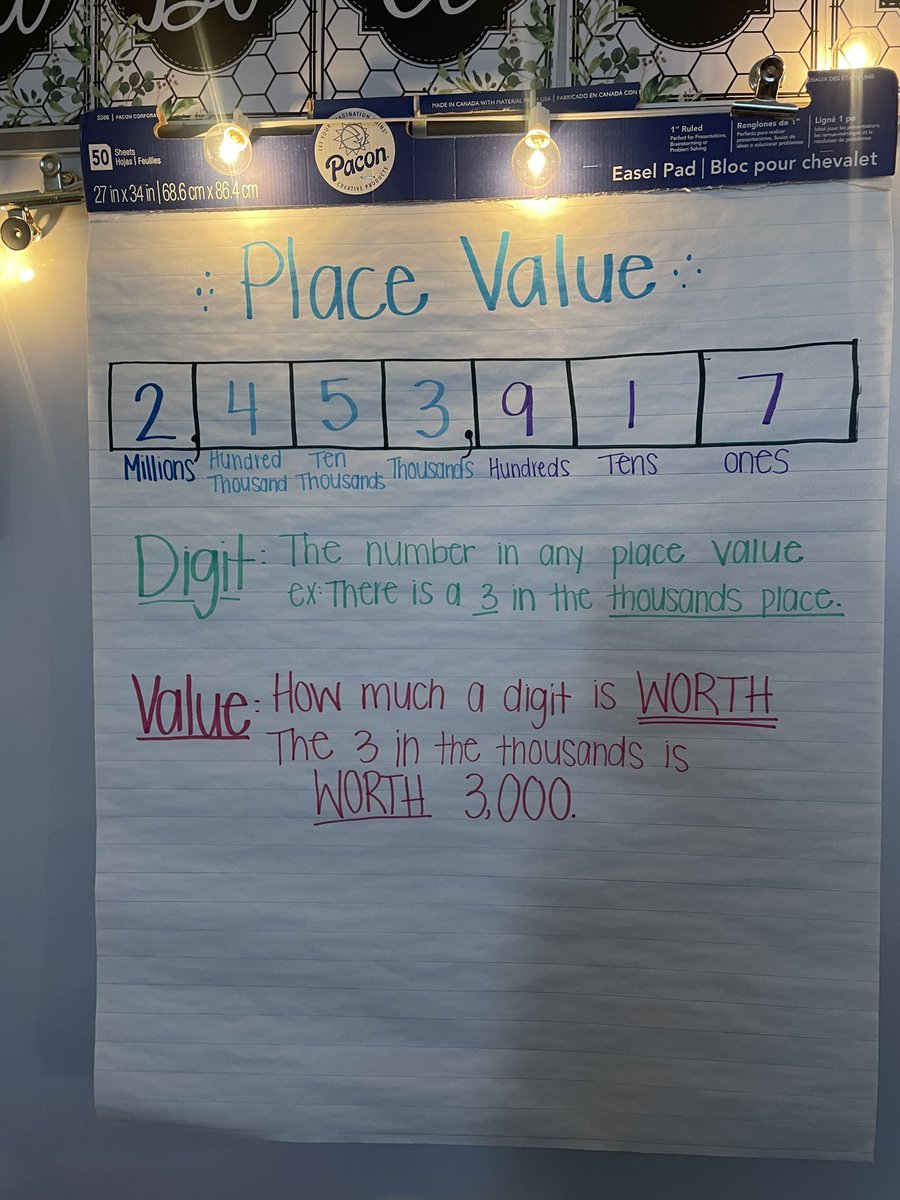 3386 | PACON CORPORA
MADE IN CANADA WITH MATERIAL FROM USA | FABRICADO EN CANADÁ CON
ÉRIAUX DES ÉTATS-UNIS
50 Sheets
Hojas | Feuilles
27 in x 34 in | 68.6 cm x 86.4 cm
Pacon
CREATIVE PRODUCTS
1" Ruled
Perfect for Presentations,
Brainstorming or
Problem Solving
Renglones de 1"
Perfecto para realizar
presentaciones, lluvias de
ideas o solucionar problemas
Ligné 1 po
Easel Pad | Bloc pour chevalet
Place Value
2,453,917
Millions Hundred Thousand Ten Thousands Thousands Hundreds Tens ones
Digit: The number in any place value
ex: There is a 3 in the thousands place.
Value: How much a digit is WORTH
The 3 in the thousands is
WORTH 3,000.